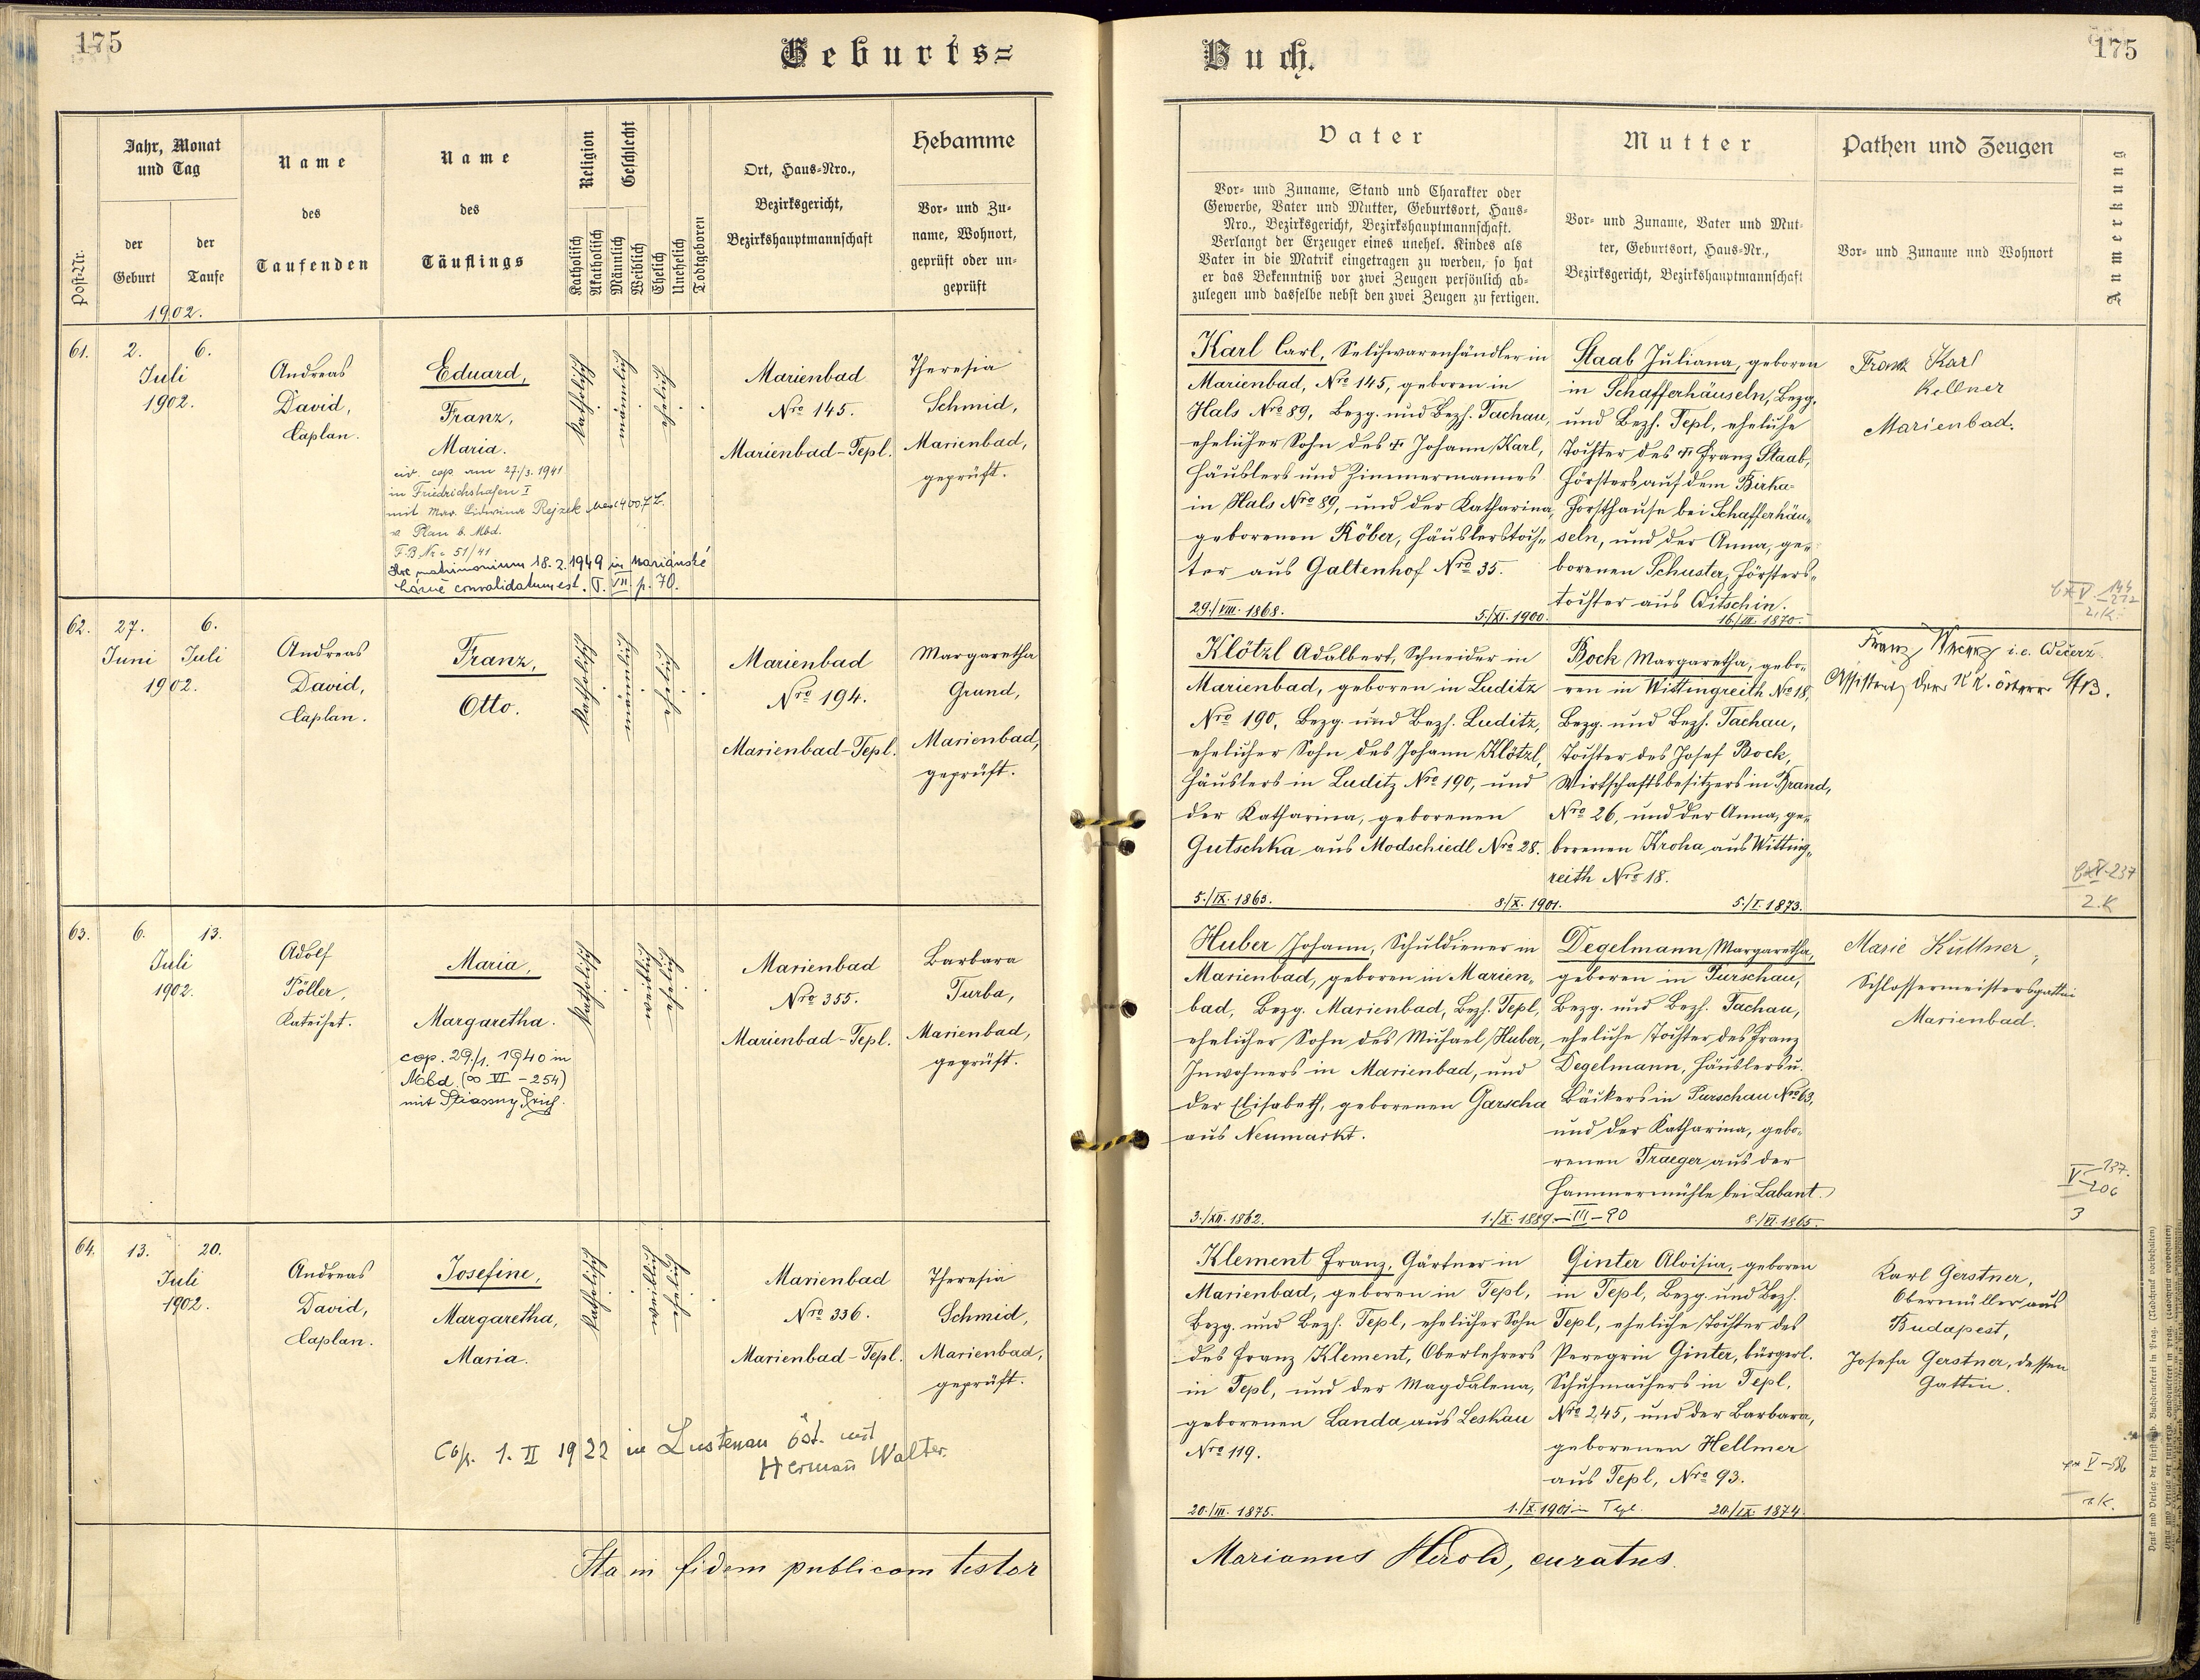 175
Geburts=
Jahr, Monat
und Tag
Name
des
Taufenden
Name
des
Täuflings
Religion
Geschlecht
Ort, Haus-Nro.,
Bezirksgericht,
Bezirkshauptmannschaft
Hebamme
Vor- und Zu-
name, Wohnort,
geprüft oder un-
geprüft
Post-Nr.
der
Geburt
der
Taufe
Katholisch
Akatholisch
Männlich
Weiblich
Ehelich
Unehelich
Todtgeboren
1902.
61.
2.
6.
Juli
1902.
Andreas
David,
Caplan.
Eduard,
Franz,
Maria.
civ. cop. am 27./3. 1941
in Friedrichshafen I
mit Mar. Lidwina Rejzek
v. Plan b. Mbd.
F.B. Nr. 51/41
matrimonium 18.2.1949 in Mariánské
Lázně convalidatum est. T. VII p. 70.
katholisch
männlich
ehelich
Marienbad
Nro 145.
Marienbad-Tepl.
Theresia
Schmid,
Marienbad,
geprüft.
62.
27.
6.
Juni Juli
1902.
Andreas
David,
Caplan.
Franz,
Otto.
katholisch
männlich
ehelich
Marienbad
Nro 194.
Marienbad-Tepl.
Margaretha
Grund,
Marienbad,
geprüft.
63.
6.
13.
Juli
1902.
Adolf
Töller,
Kateihet.
Maria,
Margaretha.
cop. 29./1. 1940 in
Mbd. (∞ VI - 254)
mit Stiassny Erich.
katholisch
weiblich
ehelich
Marienbad
Nro 355.
Marienbad-Tepl.
Barbara
Turba,
Marienbad,
geprüft.
64.
13.
20.
Juli
1902.
Andreas
David,
Caplan.
Josefine,
Margaretha,
Maria.
Cop. 1. II 1922 in Lustenau Öst. mit
Hermañ Walter.
katholisch
weiblich
ehelich
Marienbad
Nro 336.
Marienbad-Tepl.
Theresia
Schmid,
Marienbad,
geprüft.
Ita in fidem publicam testor
Buch.
175
Vater
Vor- und Zuname, Stand und Charakter oder
Gewerbe, Vater und Mutter, Geburtsort, Haus-
Nro., Bezirksgericht, Bezirkshauptmannschaft.
Verlangt der Erzeuger eines unehel. Kindes als
Vater in die Matrik eingetragen zu werden, so hat
er das Bekenntniß vor zwei Zeugen persönlich ab-
zulegen und dasselbe nebst den zwei Zeugen zu fertigen.
Mutter
Vor- und Zuname, Vater und Mut-
ter, Geburtsort, Haus-Nr.,
Bezirksgericht, Bezirkshauptmannschaft
Pathen und Zeugen
Vor- und Zuname und Wohnort
Anmerkung
Karl Carl, Selchwarenhändler in
Marienbad, Nro 145, geboren in
Hals Nro 89, Bezg. und Bezh. Tachau,
ehelicher Sohn des † Johann Karl,
Häuslers und Zimmermannes
in Hals Nro 89, und der Katharina,
geborenen Köber, Häuslerstoch-
ter aus Galtenhof Nro 35.
29./VIII. 1868.
5./XI. 1900.
Staab Juliana, geboren
in Schafferhäuseln, Bezg.
und Bezh. Tepl, eheliche
Tochter des † Franz Staab,
Försters auf dem Birka-
Forsthause bei Schafferhäu-
seln, und der Anna, ge-
borenen Schuster, Försters-
tochter aus Gitschin.
16./III. 1870.
Frank Karl
Kellner
Marienbad.
2. K.
Klötzl Adalbert, Schneider in
Marienbad, geboren in Luditz
Nro 190, Bezg. und Bezh. Luditz,
ehelicher Sohn des Johann Klötzl,
Häuslers in Luditz Nro 190, und
der Katharina, geborenen
Gutschka aus Modschiedl Nro 28.
5./IX. 1863.
8./X. 1901.
Bock Margaretha, gebo-
ren in Wittingreith Nro 18,
Bezg. und Bezh. Tachau,
Tochter des Josef Bock,
Wirtschaftsbesitzers in Brand,
Nro 26, und der Anna, ge-
borenen Kroha aus Witting-
reith Nro 18.
5./I. 1873.
Franz i.e. Wečerž
Assistent der KK. österr. StB.
2. K
Huber Johann, Schuldiener in
Marienbad, geboren in Marien-
bad, Bezg. Marienbad, Bezh. Tepl,
ehelicher Sohn des Michael Huber,
Inwohners in Marienbad, und
der Elisabeth, geborenen Garscha
aus Neumarkt.
3./XII. 1862.
1./X. 1889. - III - 90
Degelmann Margaretha,
geboren in Purschau,
Bezg. und Bezh. Tachau,
eheliche Tochter des Franz
Degelmann, Häuslers u.
Bäckers in Purschau Nro 63,
und der Katharina, gebo-
renen Traeger aus der
Hammermühle bei Labant.
8./VI. 1865.
Marie Kuttner,
Schlossermeistersgattin
Marienbad.
V - 137.
206
3
Klement Franz, Gärtner in
Marienbad, geboren in Tepl,
Bezg. und Bezh. Tepl, ehelicher Sohn
des Franz Klement, Oberlehrers
in Tepl, und der Magdalena,
geborenen Landa aus Leskau
Nro 119.
20./III. 1875.
1./X. 1901 in Tepl.
Ginter Aloisia, geboren
in Tepl, Bezg. und Bezh.
Tepl, eheliche Tochter des
Peregrin Ginter, bürgerl.
Schuhmachers in Tepl,
Nro 245, und der Barbara,
geborenen Hellmer
aus Tepl, Nro 93.
20./IX. 1874.
Karl Gerstner,
Obermüller aus
Budapest,
Josefa Gerstner, dessen
Gattin.
Marianus Herold, curatus.